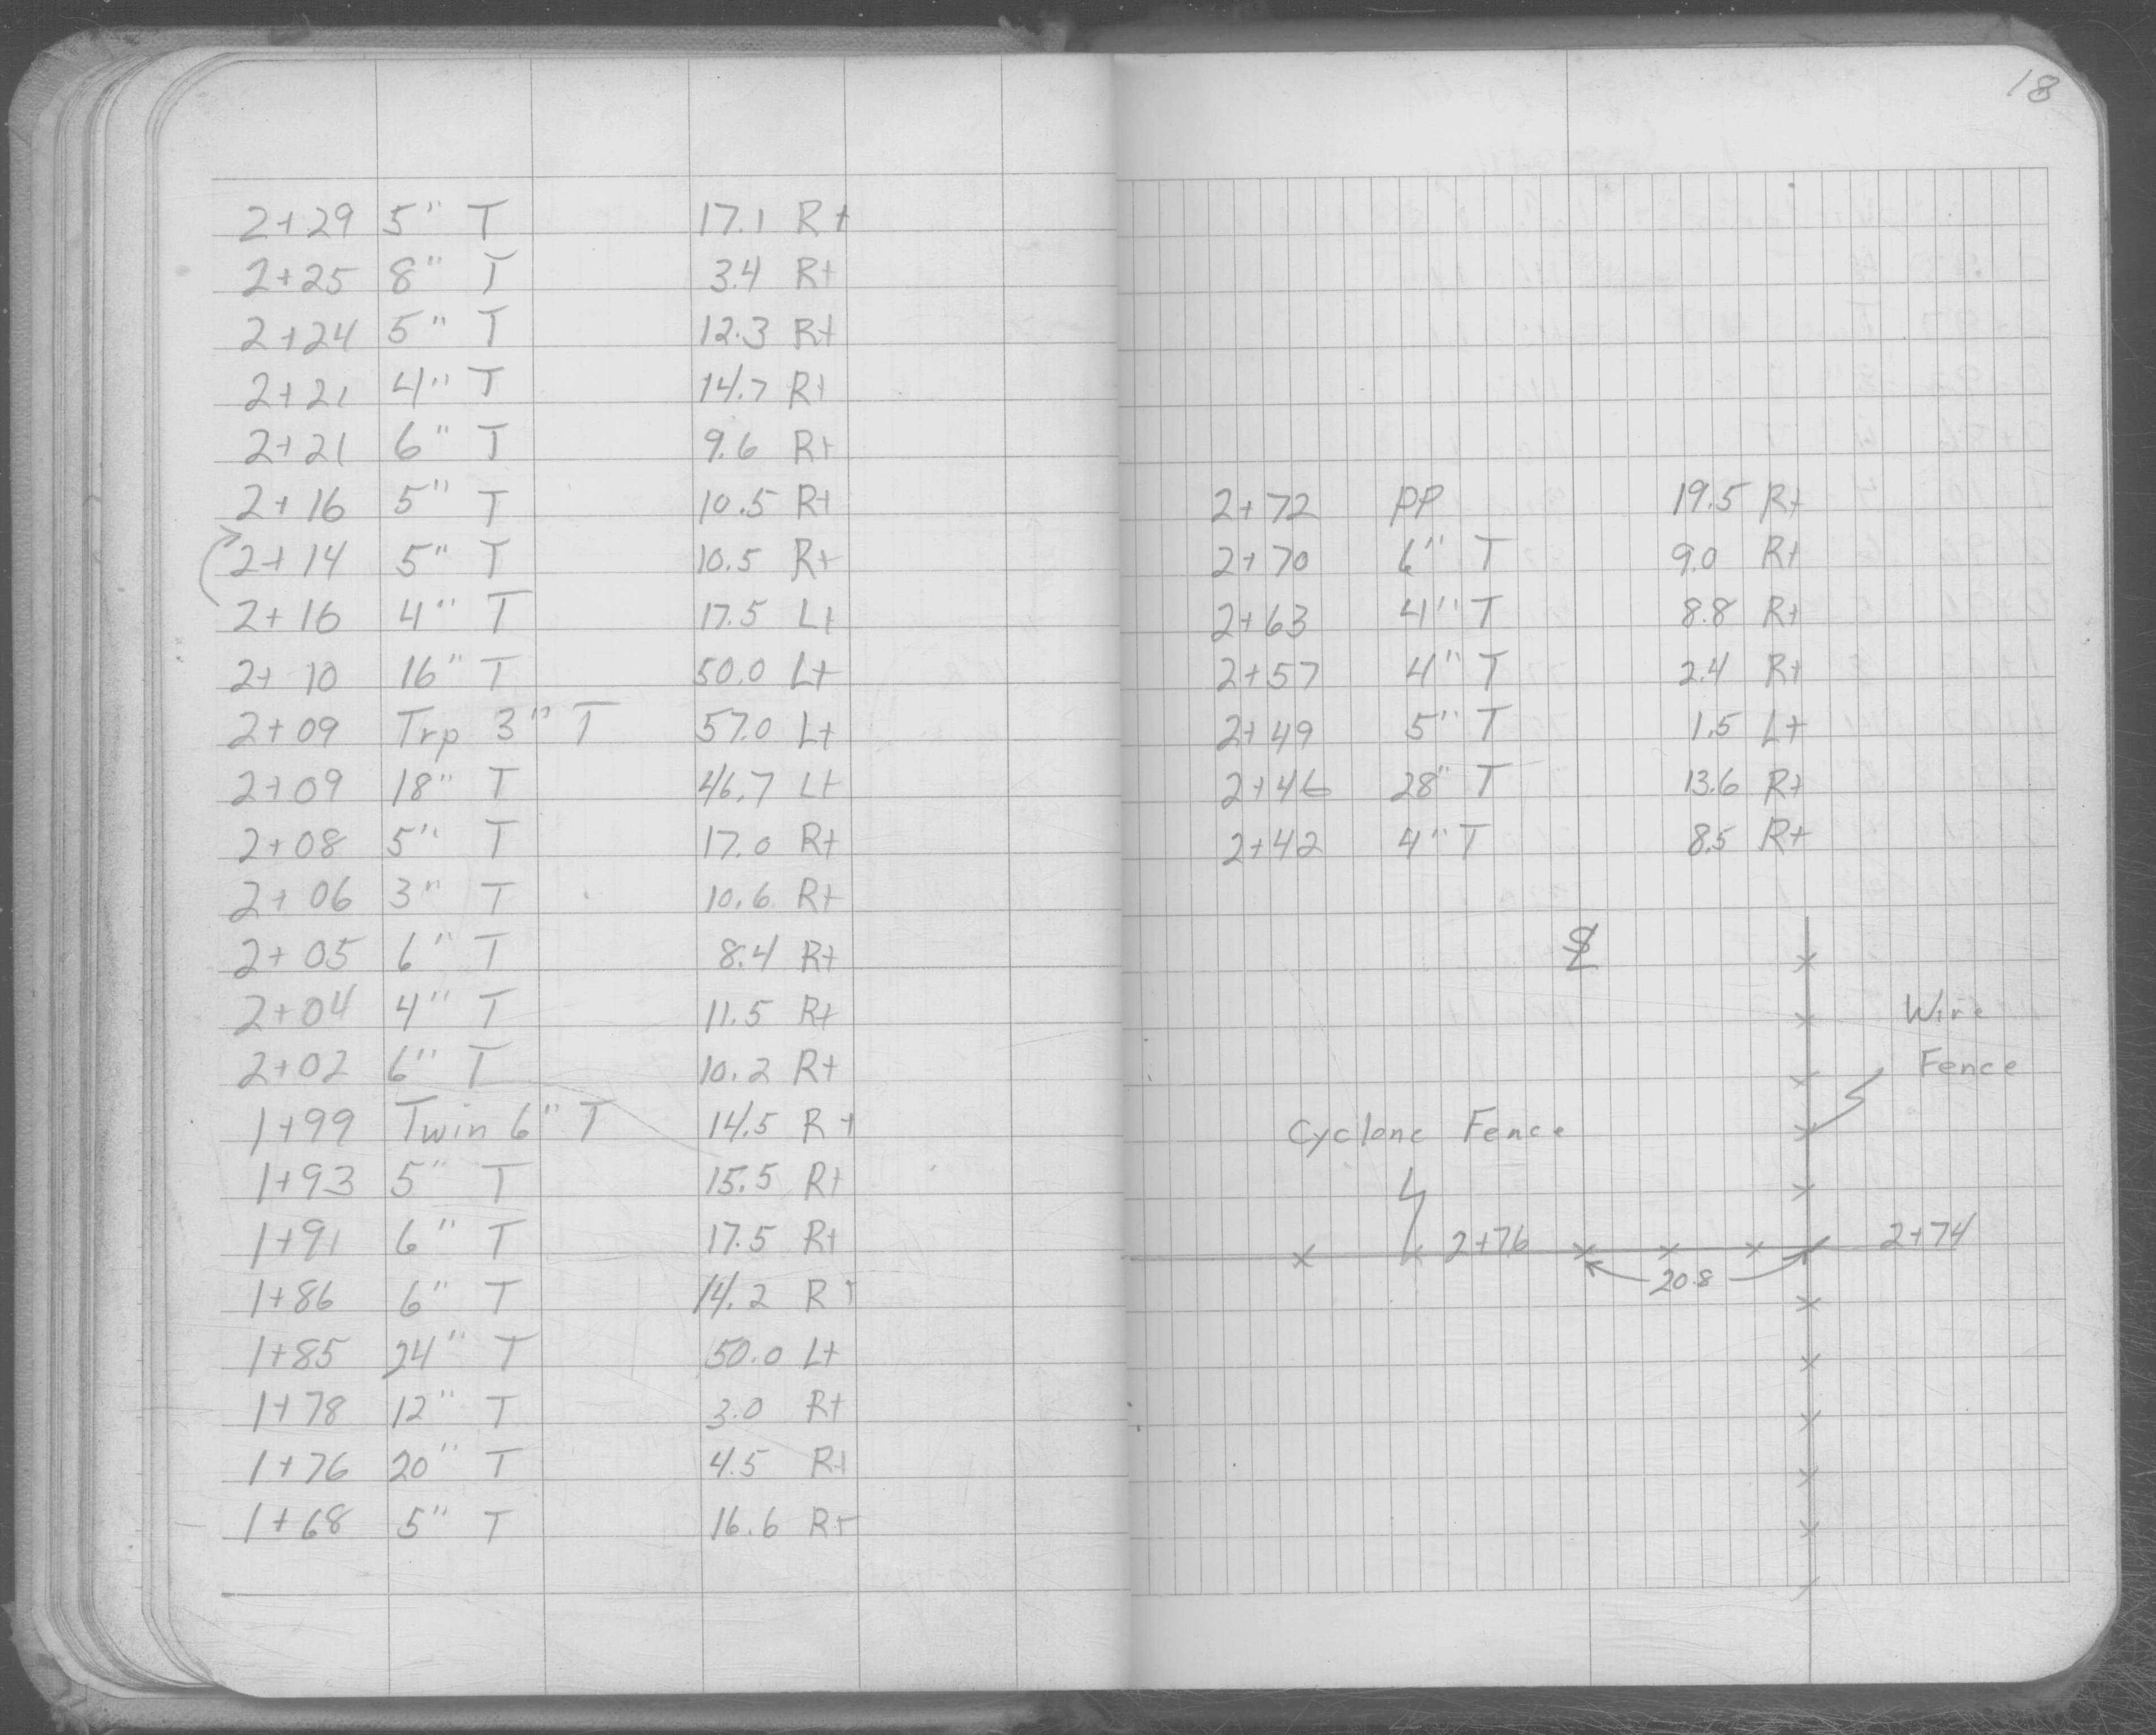 2+29 5" T 17.1 Rt
2+25 8" T 3.4 Rt
2+24 5" T 12.3 Rt
2+21 4" T 14.7 Rt
2+21 6" T 9.6 Rt
2+16 5" T 10.5 Rt
2+14 5" T 10.5 Rt
2+16 4" T 17.5 Lt
2+10 16" T 50.0 Lt
2+09 Trp 3" T 57.0 Lt
2+09 18" T 46.7 Lt
2+08 5" T 17.0 Rt
2+06 3" T 10.6 Rt
2+05 6" T 8.4 Rt
2+04 4" T 11.5 Rt
2+02 6" T 10.2 Rt
1+99 Twin 6" T 14.5 Rt
1+93 5" T 15.5 Rt
1+91 6" T 17.5 Rt
1+86 6" T 14.2 Rt
1+85 24" T 50.0 Lt
1+78 12" T 3.0 Rt
1+76 20" T 4.5 Rt
1+68 5" T 16.6 Rt
18
2+72 PP 19.5 Rt
2+70 6" T 9.0 Rt
2+63 4" T 8.8 Rt
2+57 4" T 2.4 Rt
2+49 5" T 1.5 Lt
2+46 28" T 13.6 Rt
2+42 4" T 8.5 Rt
Wire
Fence
Cyclone Fence
2+76 2+74
20.8